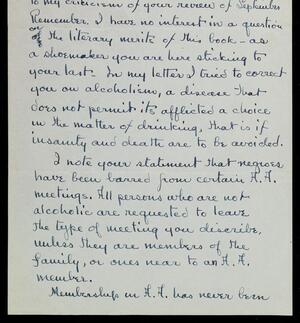 to my criticism of your review of September
Remember. I have no interest in a question
on
of the literary merits of this book - as
a shoemaker you are here sticking to
your last. In my letter I tried to correct
you on alcoholism, a disease that
does not permit its afflicted a choice
in the matter of drinking, that is if
insanity and death are to be avoided.
I note your statement that negroes
have been barred from certain A.A.
meetings. All persons who are not
alcoholic are requested to leave
the type of meeting you discribe,
unless they are members of the
family, or ones near to an A.A.
member.
Membership in A.A. has never been